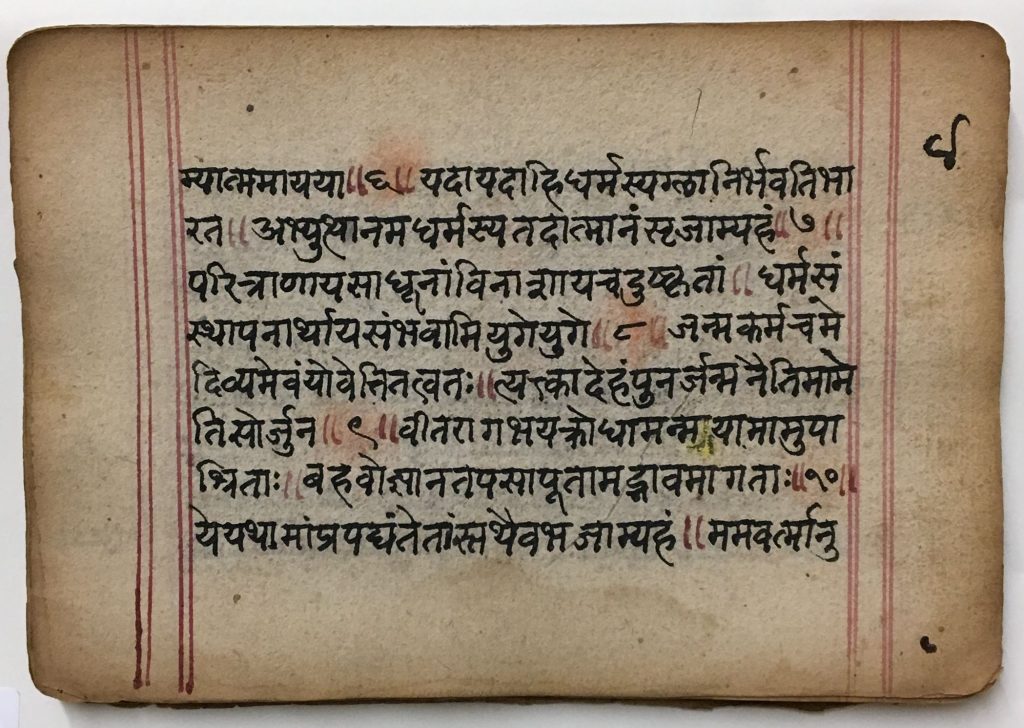 म्यात्ममायया॥६॥यदायदाहिधर्मस्यग्लानिर्भवतिभा
रत॥अभ्युत्थानमधर्मस्यतदात्मानंसृजाम्यहं॥७॥
परित्राणायसाधूनांविनाशायचदुष्कृतां॥धर्मसं
स्थापनार्थायसंभवामियुगेयुगे॥८॥जन्मकर्मचमे
दिव्यमेवंयोवेत्तितत्वतः॥त्यक्त्कादेहंपुनर्जन्मनैतिमामे
तिसोर्जुन॥९॥वीतरागभयक्रोधामन्मयामामुपा
श्रिताः॥बहवोज्ञानतपसापूतामद्भावमागताः॥१०॥
येयथामांप्रपद्यंतेतांस्तथैवभजाम्यहं॥ममवर्त्मानु